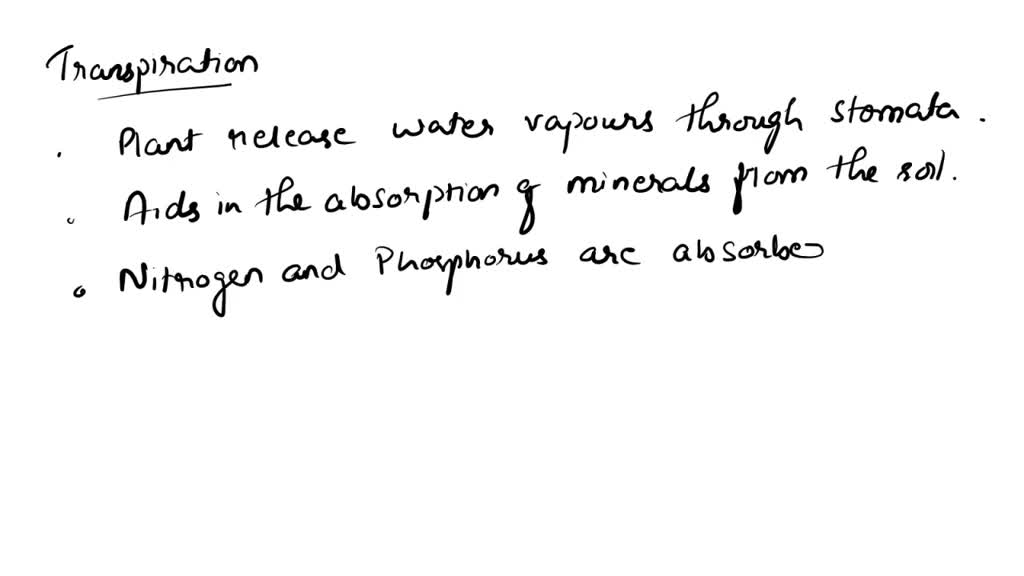 Transpiration
. Plant release water vapours through stomata.
. Aids in the absorption of minerals from the soil.
. Nitrogen and Phosphorus are absorbe